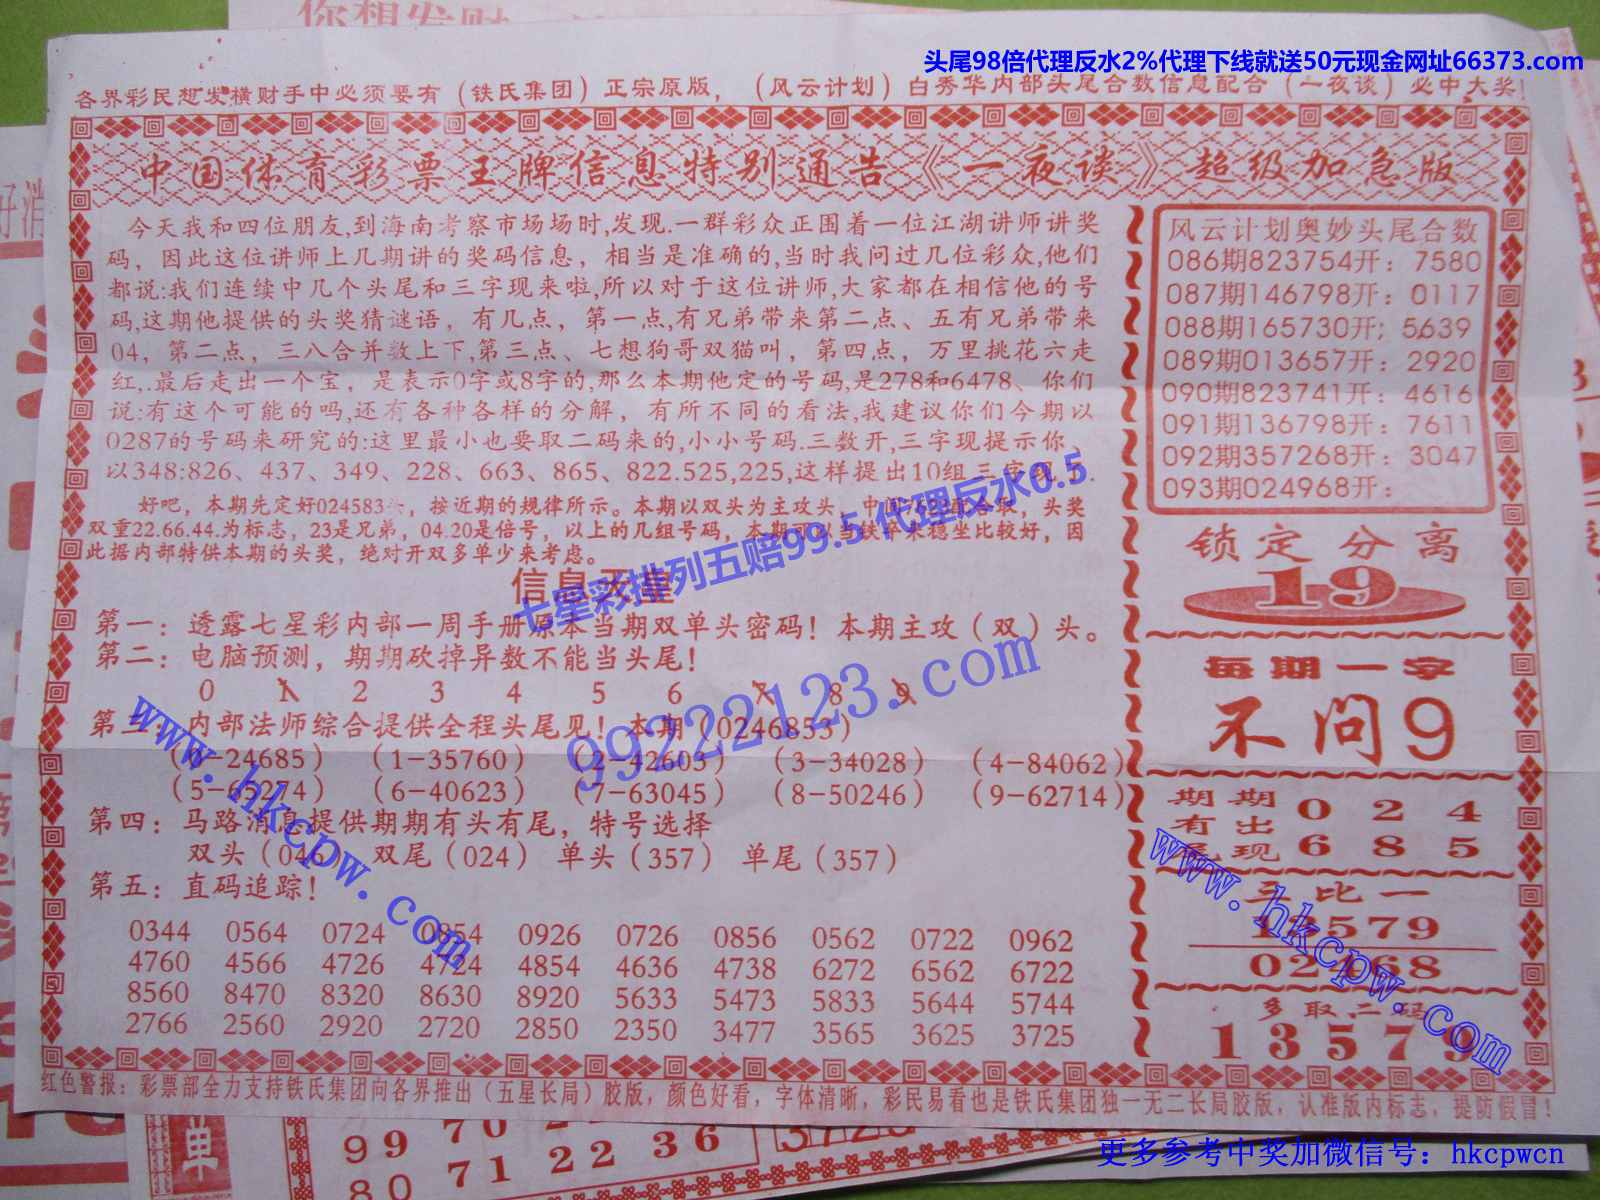 你想发财
头尾98倍代理反水2%代理下线就送50元现金网址66373.com
各界彩民想发横财手中必须要有（铁氏集团）正宗原版，（风云计划）白秀华内部头尾合数信息配合（一夜谈）必中大奖！
中国体育彩票王牌信息特别通告《一夜谈》超级加急版
今天我和四位朋友,到海南考察市场场时,发现.一群彩众正围着一位江湖讲师讲奖
码，因此这位讲师上几期讲的奖码信息，相当是准确的,当时我问过几位彩众,他们
都说:我们连续中几个头尾和三字现来啦,所以对于这位讲师,大家都在相信他的号
码,这期他提供的头奖猜谜语，有几点，第一点,有兄弟带来第二点、五有兄弟带来
04，第二点，三八合并数上下,第三点、七想狗哥双猫叫，第四点，万里挑花六走
红,.最后走出一个宝，是表示0字或8字的,那么本期他定的号码,是278和6478、你们
说:有这个可能的吗,还有各种各样的分解，有所不同的看法,我建议你们今期以
0287的号码来研究的:这里最小也要取二码来的,小小号码.三数开,三字现提示你、
以348:826、437、349、228、663、865、822.525,225,这样提出10组三字现了.
好吧，本期先定好024583头，按近期的规律所示。本期以双头为主攻头，中间7622配合取，头奖
双重22.66.44.为标志，23是兄弟，04.20是倍号，以上的几组号码，本期可以当铁卒来稳坐比较好，因
此据内部特供本期的头奖，绝对开双多单少来考虑。
七星彩排列五赔99.5 代理反水0.5
信息天皇
第一：透露七星彩内部一周手册原本当期双单头密码！本期主攻（双）头。
第二：电脑预测，期期砍掉异数不能当头尾！
0 1 2 3 4 5 6 7 8 9
第三：内部法师综合提供全程头尾见！本期（0246853）
（0-24685）（1-35760）（2-42603）（3-34028）（4-84062）
（5-65274）（6-40623）（7-63045）（8-50246）（9-62714）
第四：马路消息提供期期有头有尾，特号选择
双头（046）双尾（024）单头（357）单尾（357）
第五：直码追踪！
0344 0564 0724 0854 0926 0726 0856 0562 0722 0962
4760 4566 4726 4724 4854 4636 4738 6272 6562 6722
8560 8470 8320 8630 8920 5633 5473 5833 5644 5744
2766 2560 2920 2720 2850 2350 3477 3565 3625 3725
99222123.com
www.hkcpw.com
风云计划奥妙头尾合数
086期823754开：7580
087期146798开：0117
088期165730开；5639
089期013657开：2920
090期823741开：4616
091期136798开：7611
092期357268开：3047
093期024968开：
锁定分离
19
每期一字
不问9
期期 0 2 4
有出
尾现 6 8 5
三比一
13579
02468
多取二码
13579
www.hkcpw.com
红色警报：彩票部全力支持铁氏集团向各界推出（五星长局）胶版，颜色好看，字体清晰，彩民易看也是铁氏集团独一无二长局胶版，认准版内标志，提防假冒！
单
99 70
80 71 22 36
更多参考中奖加微信号：hkcpwcn